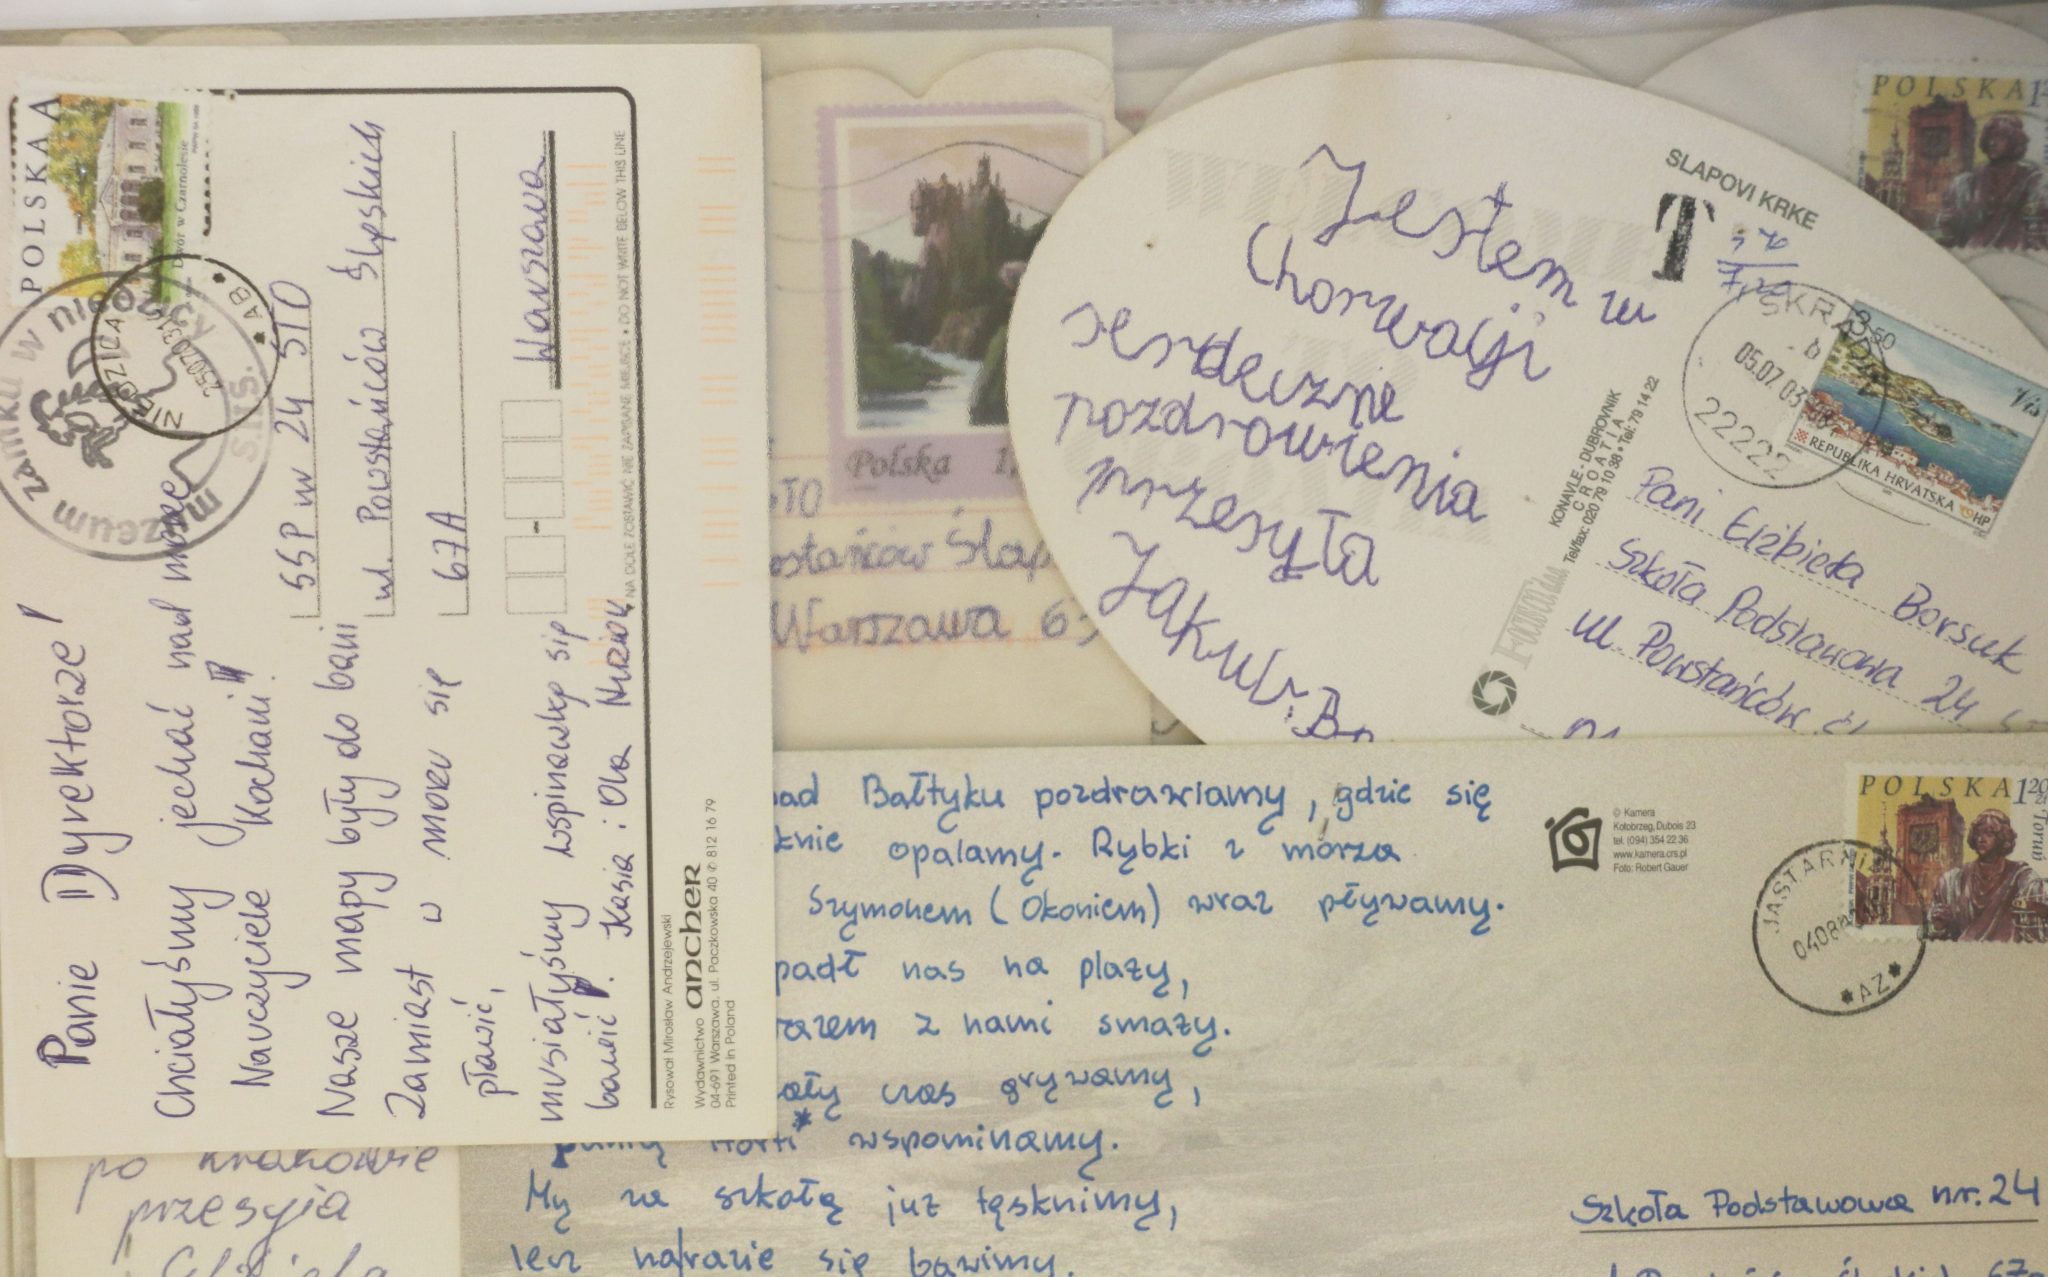 Panie Dyrektorze!
Chciałyśmy jechać nad morze
Nauczyciele Kochani!
Nasze mapy były do bani
Zamiast w morzu się
pławić,
musiałyśmy wspinawką się
bawić. Kasia i Ola
POLSKA A
Dwór w Czarnolesie
SSP nr 24 STO
ul. Powstańców Śląskich
67A
Warszawa
NA DOLE ZOSTAWIĆ NIE ZAPISANE MIEJSCE • DO NOT WRITE BELOW THIS LINE
Rysował Mirosław Andrzejewski
Wydawnictwo ancher
04-691 Warszawa, ul. Paczkowska 40 ✆ 812 16 79
Printed in Poland
muzeum zamku w niedzicy
NIEDZICA
* AB *
Polska
STO
Śląs
Warszawa
Jestem w
Chorwacji
serdeczne
pozdrowienia
przesyła
Jakub
SLAPOVI KRKE
T
SKRADIN
05.07.03
22222
3,50
Vis
REPUBLIKA HRVATSKA
HP
KONAVLE - DUBROVNIK
CROATIA
Tel/fax: 020 79 10 38 • Tel: 79 14 22
Pani Elżbieta Borsuk
Szkoła Podstawowa 24
ul. Powstańców
POLSKA
nad Bałtyku pozdrawiamy, gdzie się
opalamy. Rybki z morza
Szymonem (Okoniem) wraz pływamy.
nas na plaży,
z nami smaży.
czas grywamy,
wspominamy.
My za szkołą już tęsknimy,
lecz narazie się bawimy.
© Kamera
Kołobrzeg, Dubois 23
tel. (094) 354 22 36
www.kamera.crs.pl
Foto: Robert Gauer
POLSKA 1,20 zł
Toruń
JASTARNIA
* AZ *
Szkoła Podstawowa nr. 24
po Krakowie
przesyła